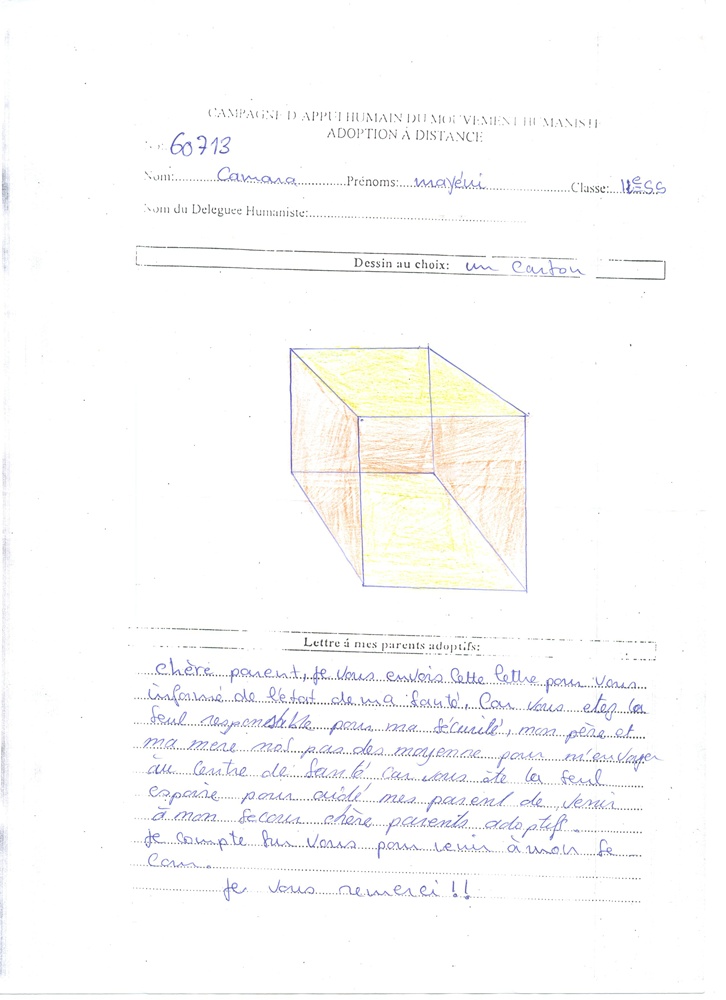 CAMPAGNE D'APPUI HUMAIN DU MOUVEMENT HUMANISTE
ADOPTION À DISTANCE
No: 60713
Nom: Camara Prénoms: mayéni Classe: 11e SS
Nom du Deleguee Humaniste:
Dessin au choix: un carton
Lettre á mes parents adoptifs:
chère parent, je vous envois cette lettre pour vous
informé de l'état de ma santé, Car vous etez la
seul responsable pour ma sécurité, mon père et
ma mere nos pas des moyenne pour m'envoyer
au centre de santé car vous ête la seul
espoire pour aidé mes parent de venir
à mon secour chère parents adoptif.
Je compte sur vous pour venir à mon se
cour.
Je vous remerci !!